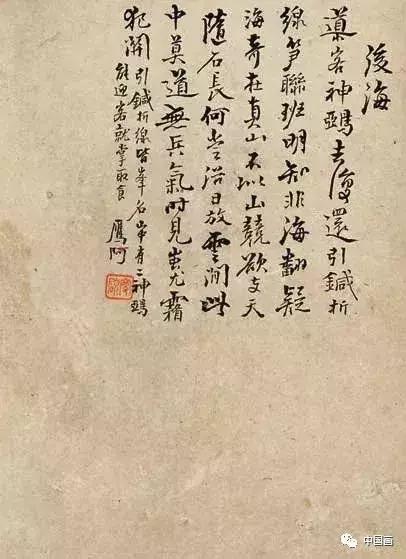 後海
導客神鴉去復還引鍼折
線笋聯班明知非海翻疑
海奇在真山不似山競欲支天
隨石長何嘗沿日放雲閒此
中莫道無兵氣時見蚩尤霜
犯關 引鍼折線皆峯名常有二神鴉
能迎客就掌取食 鷹阿
中国画